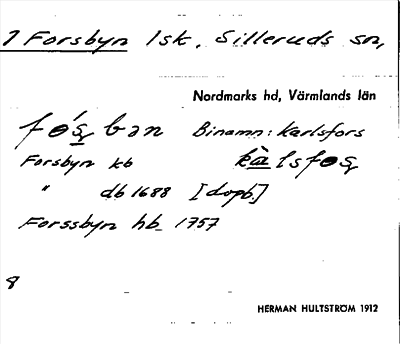 1 Forsbyn 1sk. Silleruds sn,
Nordmarks hd, Värmlands län
fo̵´s̱ bən Binamn: Karlsfors
Forsbyn kb kà̱lsfo̵s̱
" db 1688 [dopb.]
Forssbyn hb 1757
8
HERMAN HULTSTRÖM 1912